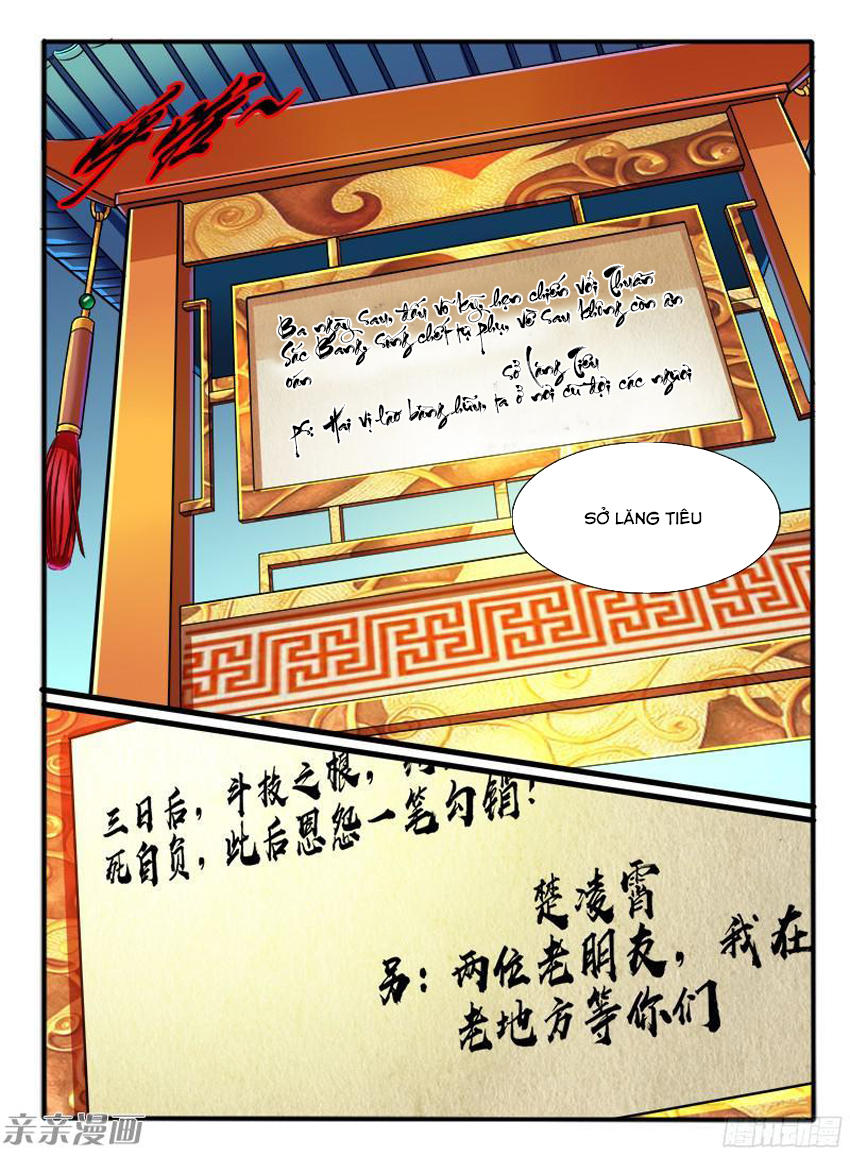 Ba ngày sau, đấu võ kỳ, hẹn chiến với Thuần
Sắc Bang, sống chết tự phụ, về sau không còn ân
oán
Sở Lăng Tiêu
ps: Hai vị lão bằng hữu, ta ở nơi cũ đợi các người
SỞ LĂNG TIÊU
三日后，斗技之根，
死自负，此后恩怨一笔勾销！
楚凌霄
另：两位老朋友，我在
老地方等你们
亲亲漫画
腾讯动漫